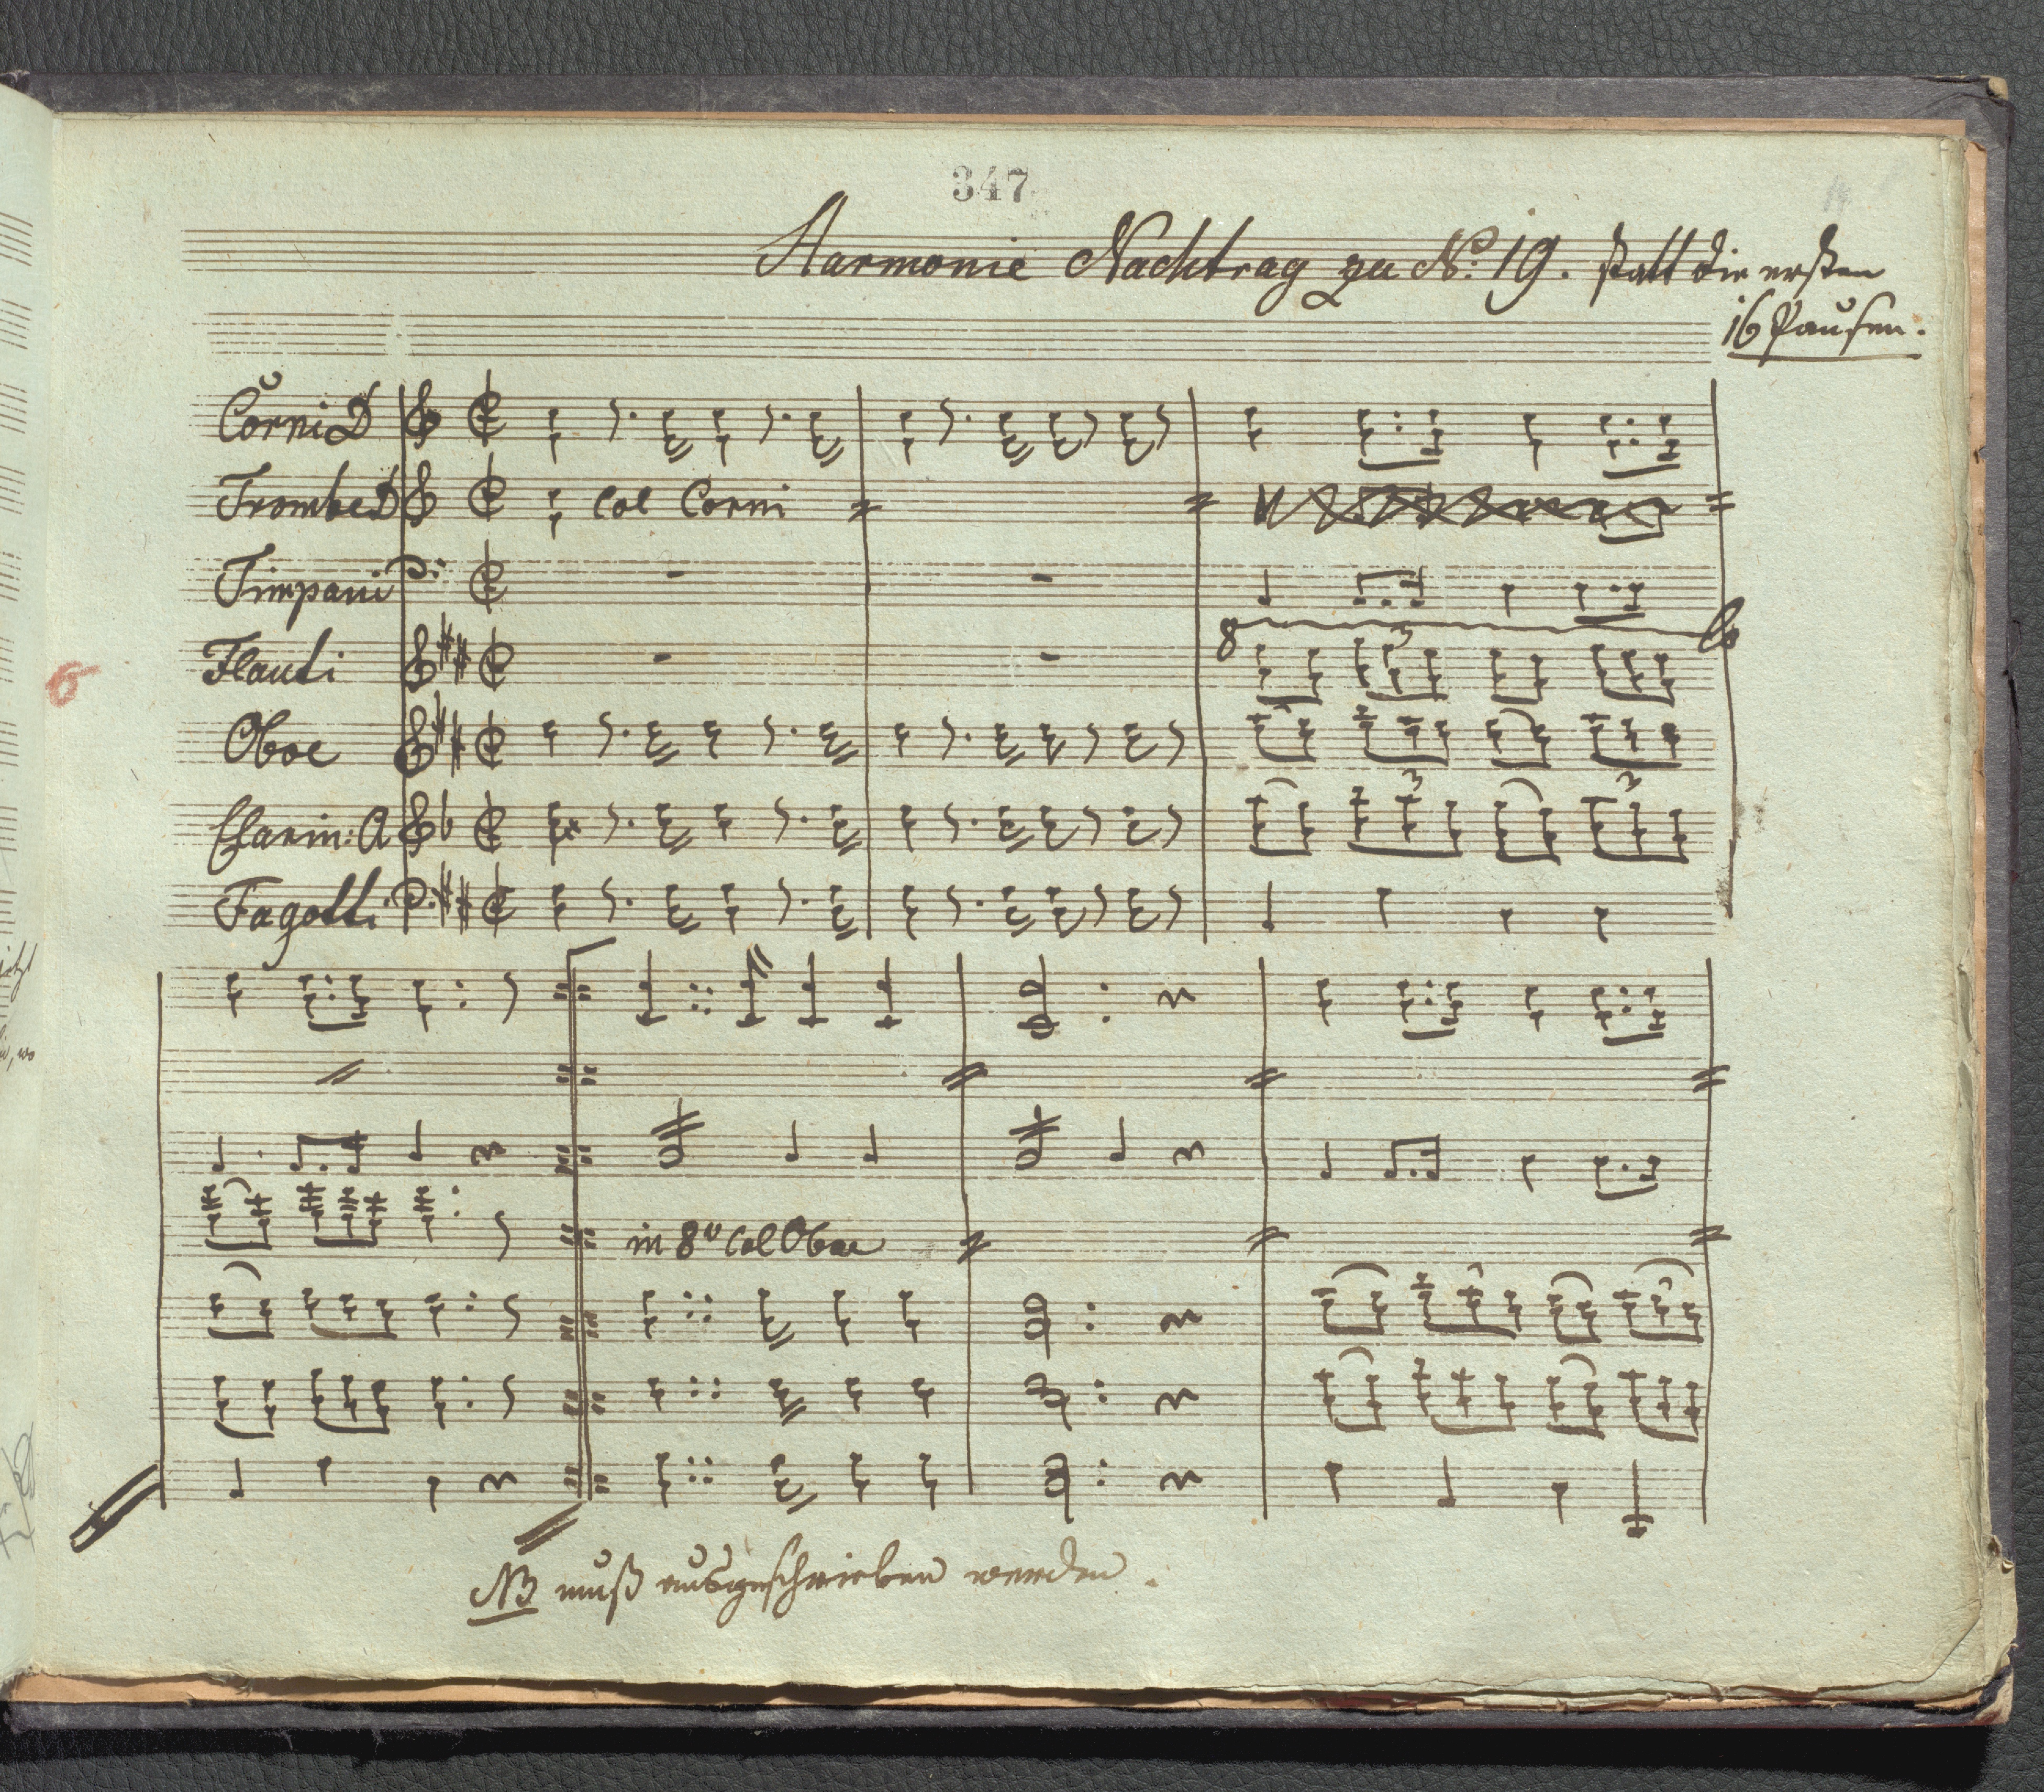 347
Harmonie Nachtrag zu No: 19. statt die ersten
16 Pausen.
Corni D
Trombe D col Corni
Timpani
8
Flauti 3
6
Oboe
Clarin: A 3 3
Fagotti
in 8va col Oboe
NB muß ausgeschrieben werden.